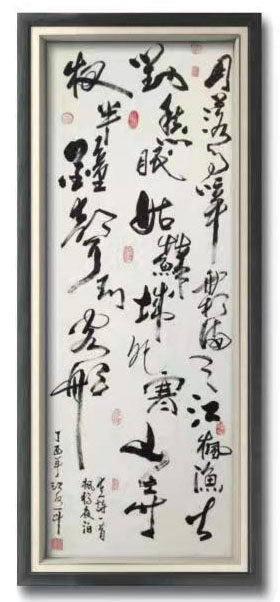 月落烏啼霜滿天江楓漁火
對愁眠姑蘇城外寒山寺
夜半鐘聲到客船
唐詩一首
楓橋夜泊
丁酉年